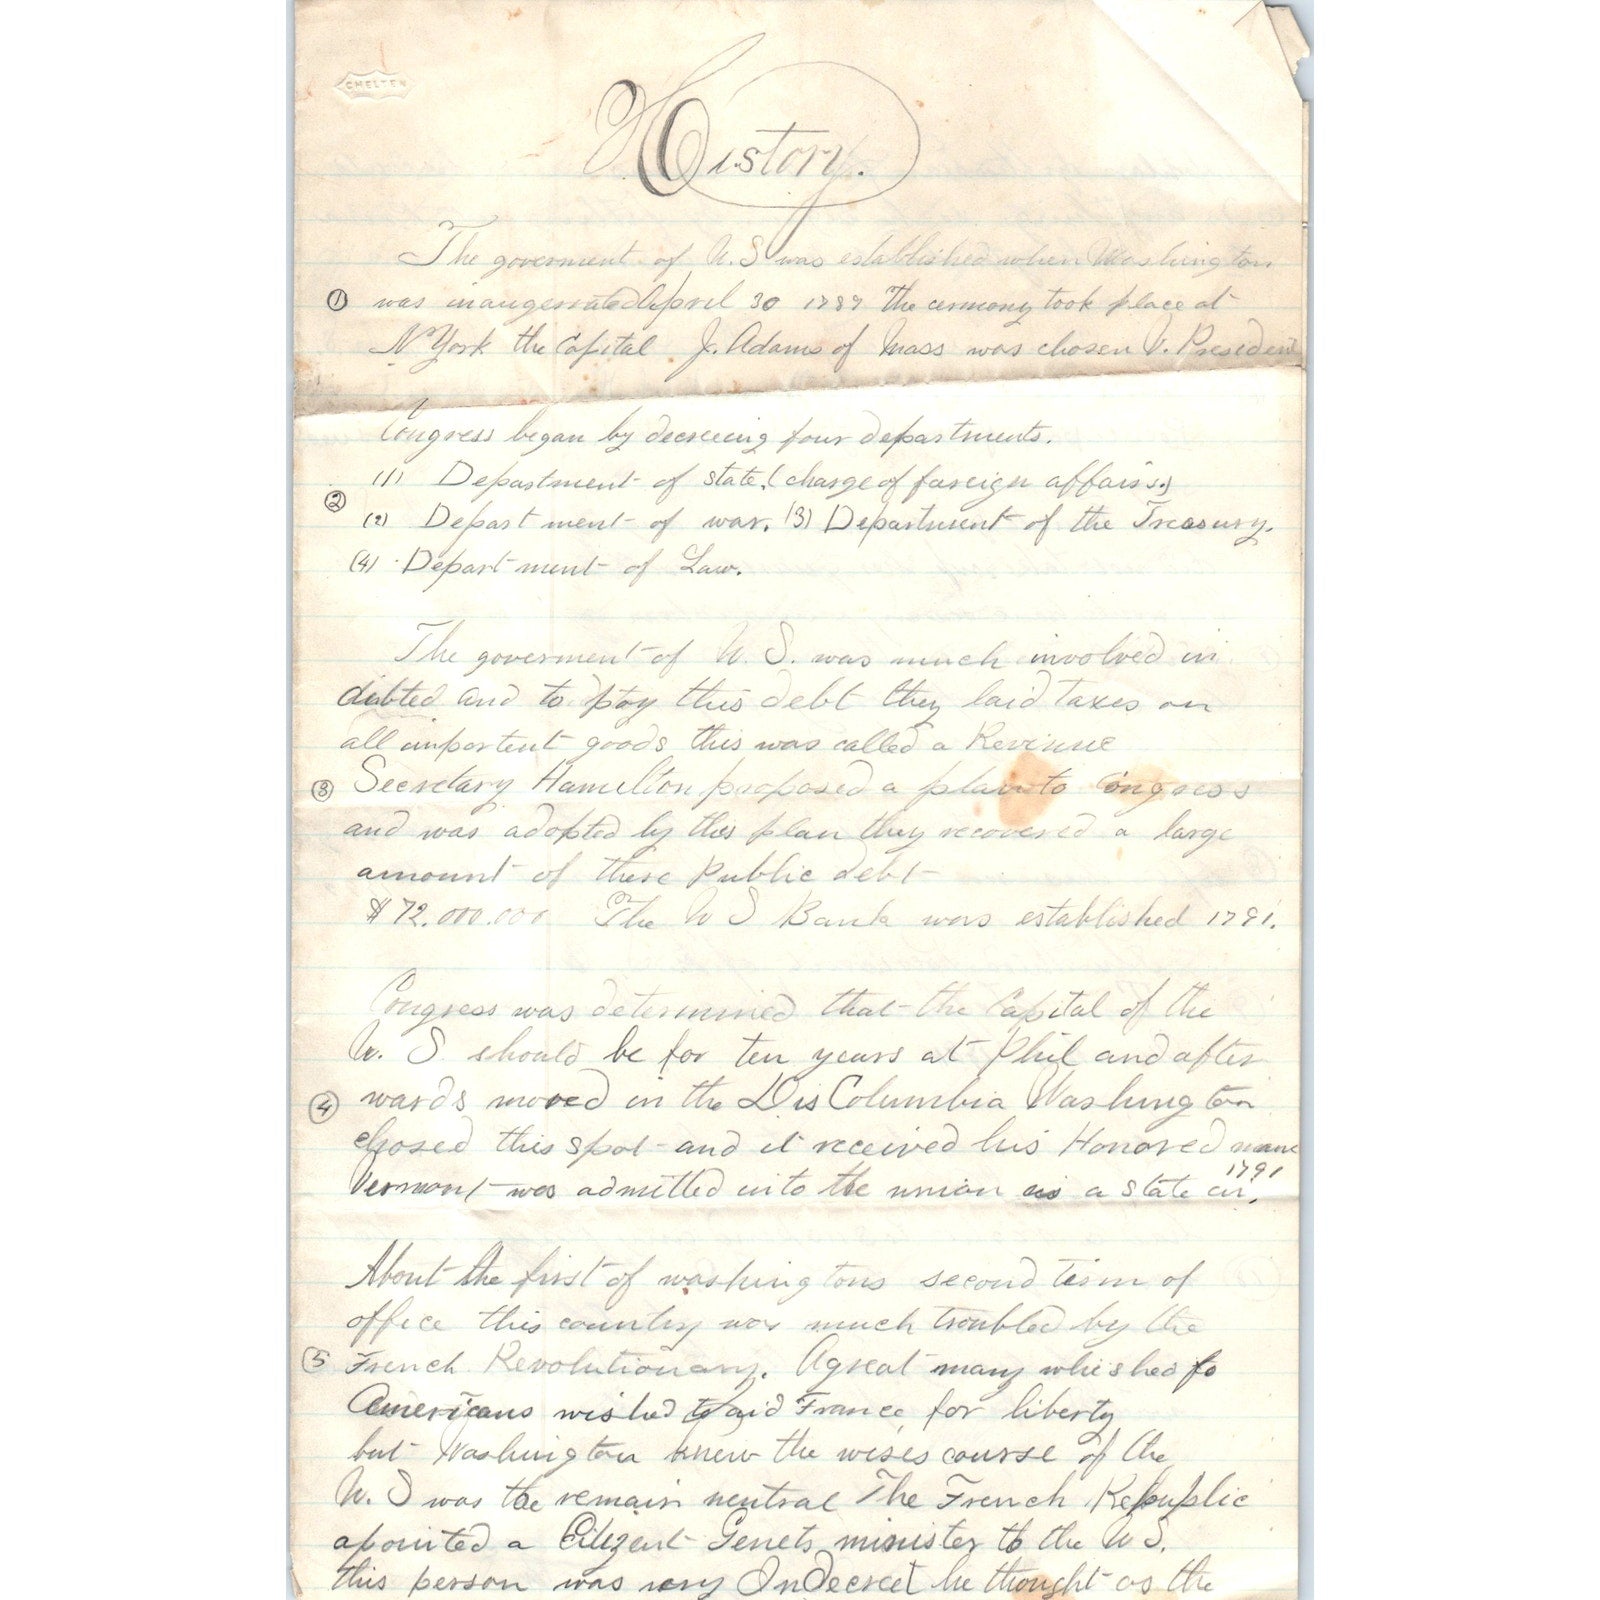 CHELTEN
History.
The goverment of U.S was established when Washington
① was inaugerrated April 30 1789 The cermony took place at
N York the Capital J. Adams of Mass was chosen V. President
Congress began by decreeing four departments.
(1) Department of state. (charge of foreign affairs.)
②
(2) Department of war. (3) Department of the Treasury.
(4) Department of Law.
The goverment of U. S. was much involved in
dibted and to pay this debt they laid taxes on
all importent goods this was called a Revinue
③ Secretary Hamilton proposed a plan to Congress
and was adopted by this plan they recovered a large
amount of these Public debt
$72.000.000 The U S Bank was established 1791.
Congress was determined that the Capital of the
U. S should be for ten years at Phil and after
④ wards moved in the Dis Columbia Washington
chosed this spot and it received his Honored name
1791
Vermont was admitted into the union as a state in.
About the first of washingtons second term of
office this country was much troubled by the
⑤ French Revolutionary. A great many whished fo
Americans wished to aid France for liberty
but Washington knew the wises course of the
U. S was the remain neutral The French Republic
apointed a Citizent Genets minister to the U S.
this person was very Indecret he thought as the